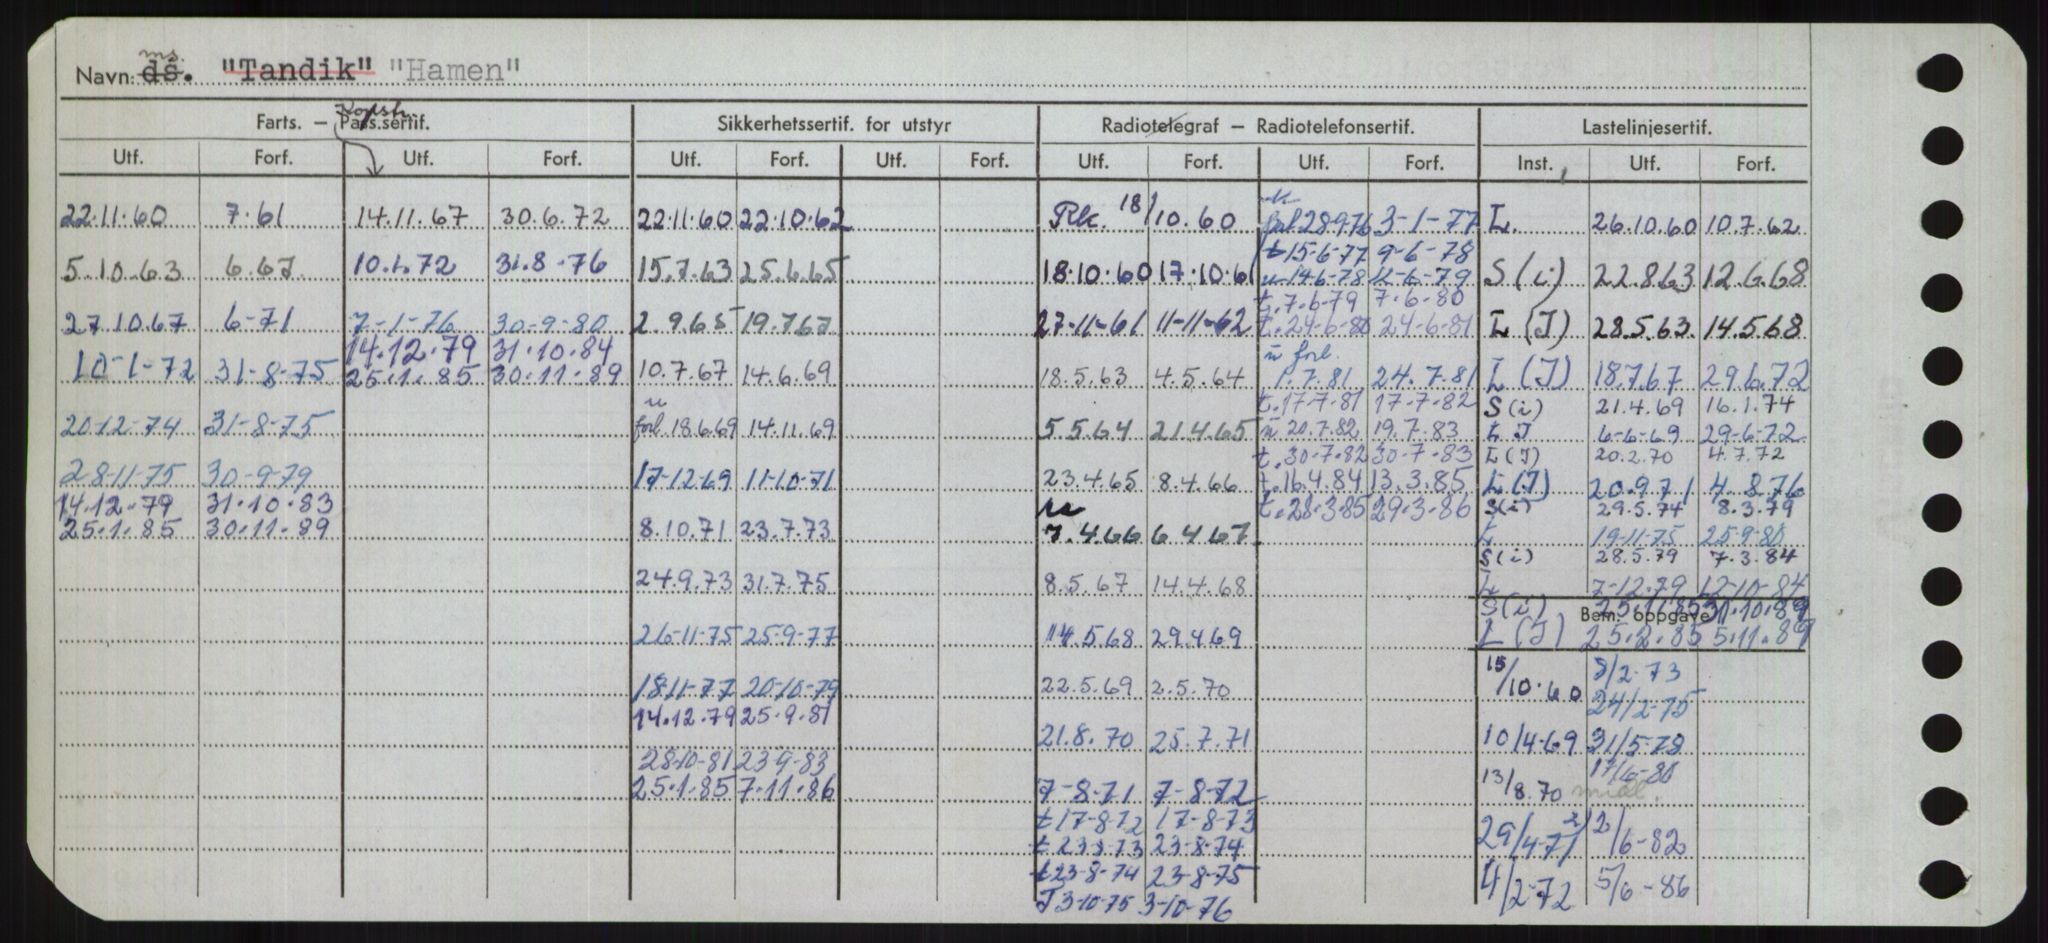 Navn: ds. ms "Tandik" "Hamen"
Farts. — Pass.sertif. Konstr.
Sikkerhetssertif. for utstyr
Radiotelegraf — Radiotelefonsertif.
Lastelinjesertif.
Utf. Forf. Utf. Forf. Utf. Forf. Utf. Forf. Utf. Forf. Utf. Forf. Inst. Utf. Forf.
22.11.60 7.61
5.10.63 6.67
27.10.67 6-71
10-1-72 31-8-75
20-12-74 31-8-75
28-11-75 30-9-79
14.12.79 31.10.83
25.1.85 30.11.89
14.11.67 30.6.72
10.1.72 31.8.76
7-1-76 30-9-80
14.12.79 31.10.84
25.1.85 30.11.89
22.11.60 22.10.62
15.7.63 25.6.65
2.9.65 19.7.67
10.7.67 14.6.69
u
forl. 18.6.69 14.11.69
17-12-69 11-10-71
8.10.71 23.7.73
24.9.73 31.7.75
26-11-75 25-9-77
18-11-77 20-10-79
14.12.79 25.9.81
28-10-81 23-9-83
25.1.85 7.11.86
Rk. 18/10.60
18.10.60 17.10.61
27-11-61 11-11-62
18.5.63 4.5.64
5.5.64 21.4.65
23.4.65 8.4.66
u
7.4.66 6.4.67
8.5.67 14.4.68
14.5.68 29.4.69
22.5.69 2.5.70
21.8.70 25.7.71
7-8-71 7-8-72
t 17-8-72 17-8-73
t 23-8-73 23-8-74
t 23-8-74 23-8-75
T 3-10-75 3-10-76
u
forl 28-9-76 3-1-77
t 15-6-77 9-6-78
u 14-6-78 12-6-79
t. 7.6-79 7-6-80
t. 24-6-80 24-6-81
u forl.
1.7.81 24.7.81
t. 17-7-81 17-7-82
u 20.7.82 19.7.83
t. 30-7-82 30-7-83
t. 16.4.84 13.3.85
t. 28-3-85 29-3-86
L. 26.10.60 10.7.62
S (i) 22.8.63 12.6.68
L (I) 28.5.63 14.5.68
L (I) 18.7.67 29.6.72
S (i) 21.4.69 16.1.74
L I 6-6-69 29-6-72
L (I) 20.2.70 4.7.72
L (I) 20.9.71 4.8.76
S (i) 29.5.74 8.3.79
L 19-11-75 25-9-80
S (i) 28.5.79 7.3.84
L 7-12-79 12-10-84
S (i) 25.1.85 31.10.89
Bem. oppgave
L (I) 25.2.85 5.11.89
15/10.60 8/2-73
24/2-75
10/4-69 31/5-78
17/6-80
13/8.70 midl.
29/4-71 2/6-82
4/2-72 5/6-86